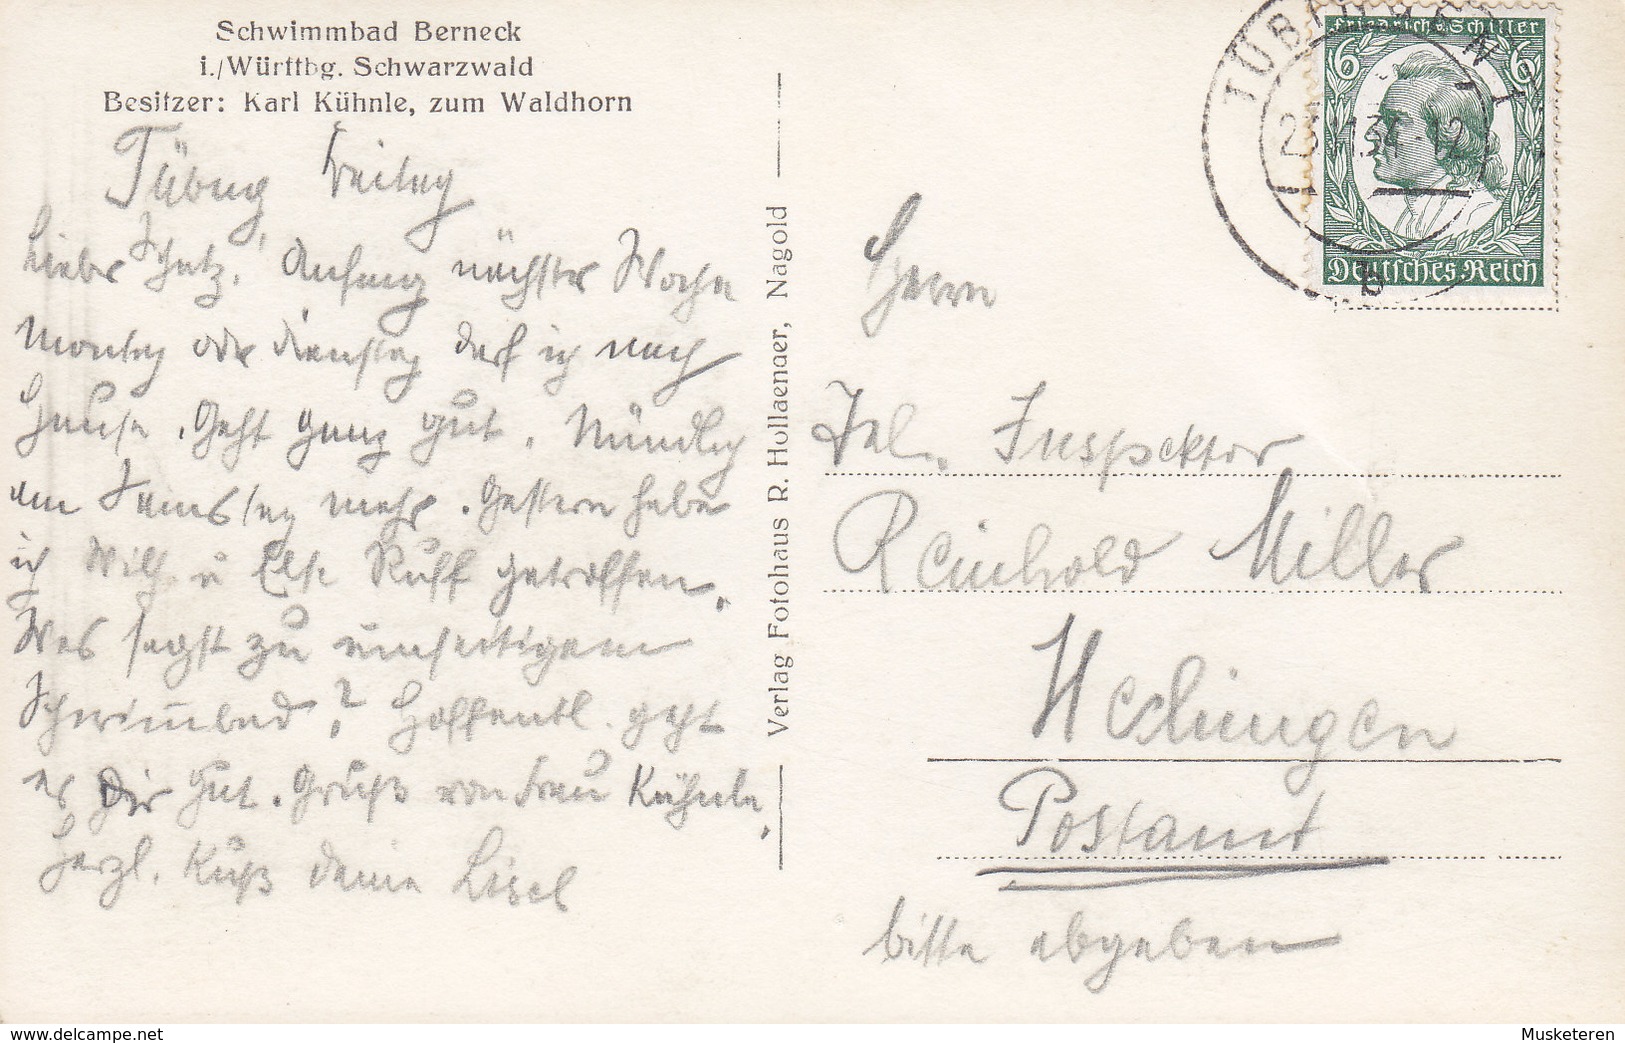 Schwimmbad Berneck
i./Württbg. Schwarzwald
Besitzer: Karl Kühnle, zum Waldhorn
Tübng, Freitag
Lieber Schatz. Anfang nächster Woche
Montag oder Dienstag darf ich nach
Hause. Geht ganz gut. Mündlich
am Samstag mehr. Gestern habe
ich Wilh. u Else Ruff getroffen.
Was sagst zu umseitigem
Schwimmbad? Hoffentl. geht
es Dir gut. Gruß von Frau Kühnle,
Herzl. Kuß deine Lisel
Verlag Fotohaus R. Hollaender, Nagold
TÜBINGEN 1
23.11.34.-12
b
Friedrich Schiller
6 6
Deutsches Reich
Herrn
Tel. Inspektor
Reinhold Miller
Hechingen
Postamt
bitte abgeben
www.delcampe.net
Musketeren